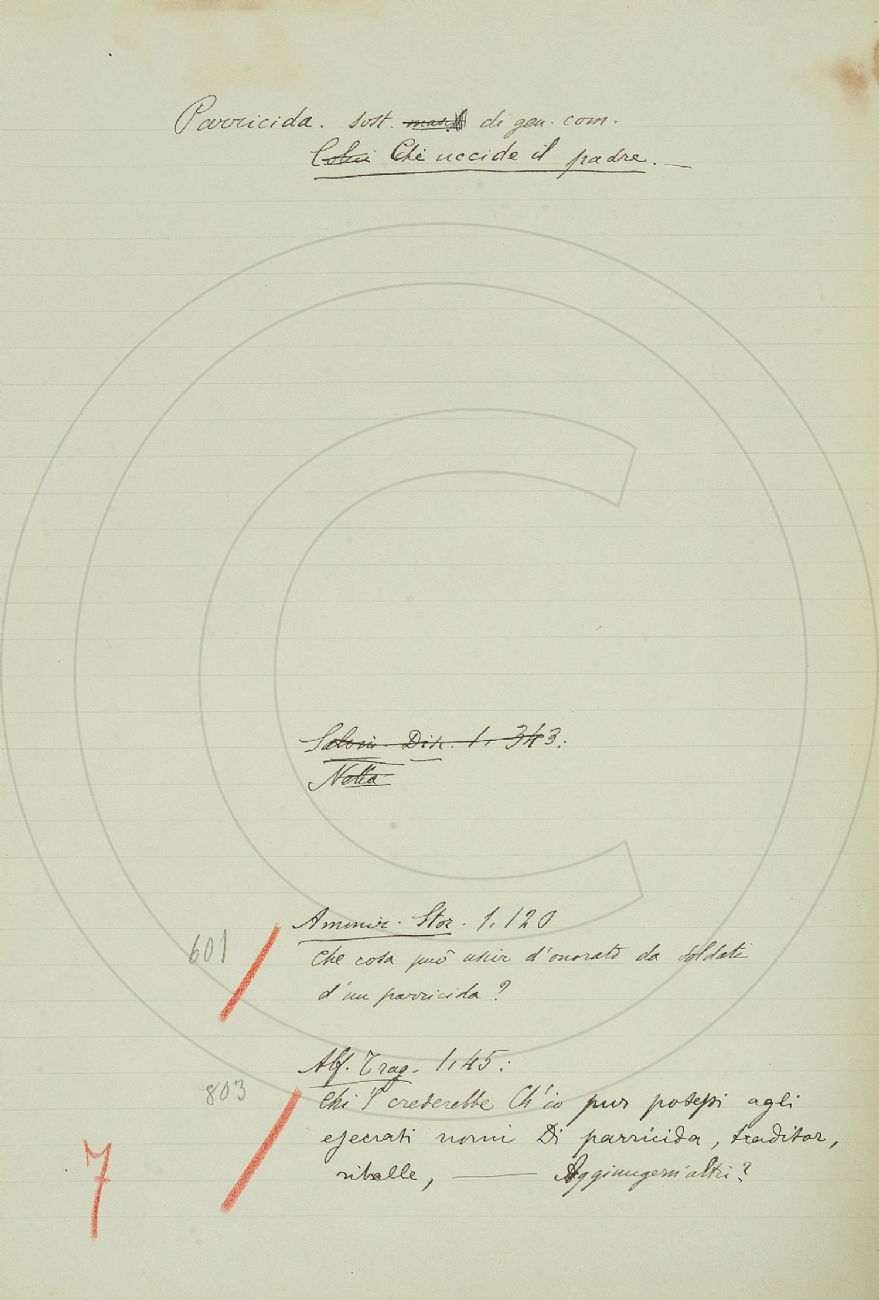 Parricida. sost. masc. di gen. com.
Colui Chi uccide il padre. —
Salvin. Dis. 1. 343:
Nella
Ammir. Stor. 1. 120
601
Che cosa può uscir d'onorato da soldati
d'un parricida?
Alf. Trag. 1. 45:
803
Chi 'l crederebbe Ch'io pur potessi agli
esecrati nomi Di parricida, traditor,
7
ribelle, —— Aggiungern'altri?